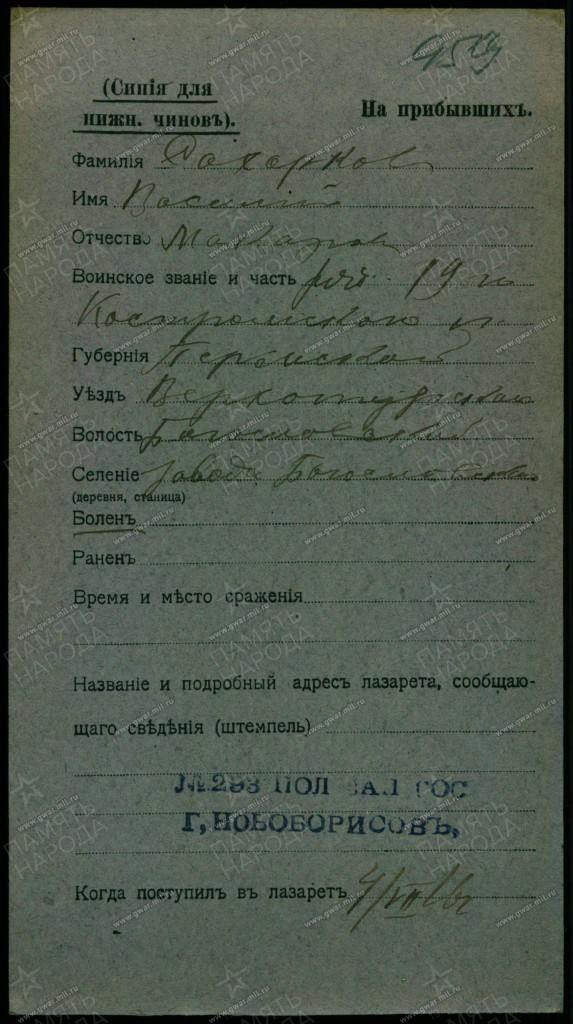 (Синія для
нижн. чиновъ).
На прибывшихъ.
Фамилія
Имя Василій
Отчество Макаров
Воинское званіе и часть ряд. 19 п
Костромского п.
Губернія Пермской
Уѣздъ Верхотурскаго
Волость Богословской
Селеніе завода Богословскаго
(деревня, станица)
Боленъ
Раненъ
Время и мѣсто сраженія
Названіе и подробный адресъ лазарета, сообщаю-
щаго свѣдѣнія (штемпель)
№293 ПОЛ ЗАП ГОС
Г, НОВОБОРИСОВЪ,
Когда поступилъ въ лазаретъ
ПАМЯТЬ НАРОДА
www.gwar.mil.ru